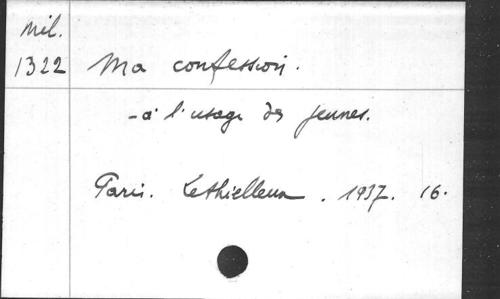 Mil.
1322 Ma confession.
- à l'usage des jeunes.
Paris. Lethielleux. 1937. 16.